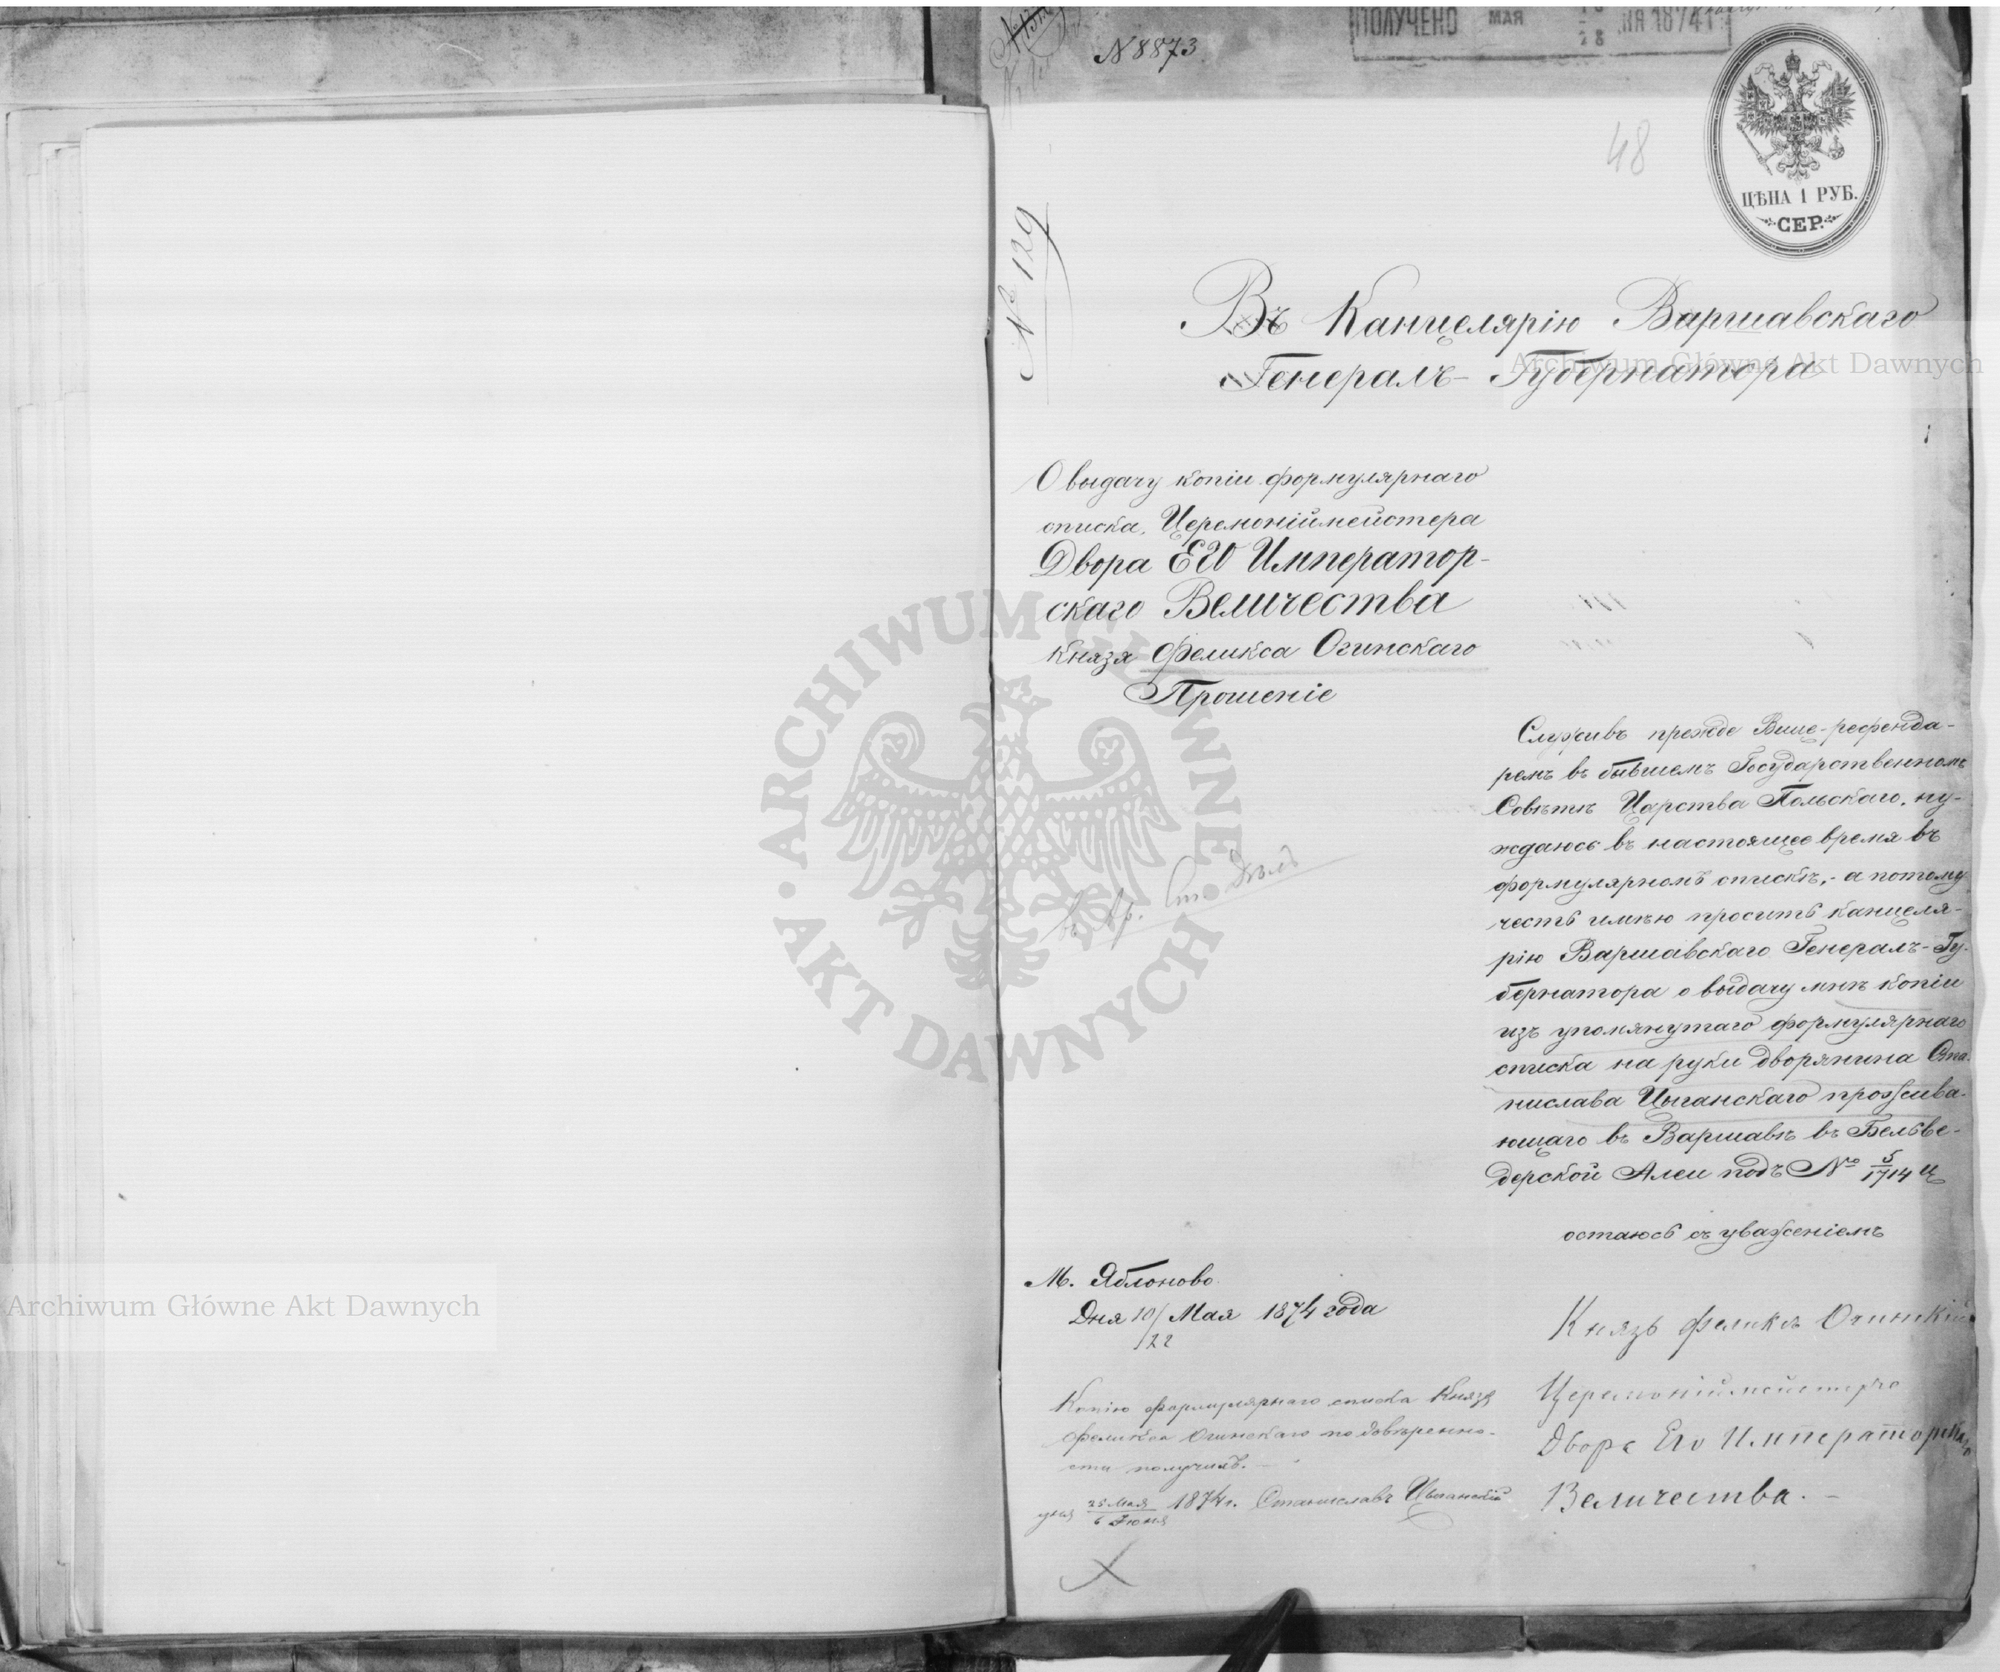 N 8873
ПОЛУЧЕНО МАЯ 1874
48
ЦѢНА 1 РУБ.
СЕР.
№ 129
Въ Канцелярію Варшавскаго
Генералъ-Губернатора
Archiwum Główne Akt Dawnych
О выдачу копіи формулярнаго
списка, Церемоніймейстера
Двора ЕГО Император-
скаго Величества
Князя Феликса Огинскаго
Прошеніе
Служивъ прежде Вице-референда-
ремъ въ бывшемъ Государственномъ
Совѣтѣ Царства Польскаго, ну-
ждаюсь въ настоящее время въ
формулярномъ спискѣ, - а потому
честь имѣю просить Канцеля-
рію Варшавскаго Генералъ-Гу-
бернатора о выдачу мнѣ копіи
изъ упомянутаго формулярнаго
списка на руки дворянина Ста-
нислава Цыганскаго прожива-
ющаго въ Варшавѣ въ Бельве-
дерской Алеи подъ № 5/1714 ц
остаюсь съ уваженіемъ
М. Яблоново
Дня 10/22 Мая 1874 года
Князь Феликсъ Огинскій
Церемоніймейстеръ
Двора Его Императорскаго
Величества. -
Копію формулярнаго списка Князя
Феликса Огинскаго по довѣренно-
сти получилъ. -
дня 25 Мая/6 Іюня 1874 г. Станиславъ Цыганскій
ARCHIWUM GŁÓWNE AKT DAWNYCH
Archiwum Główne Akt Dawnych